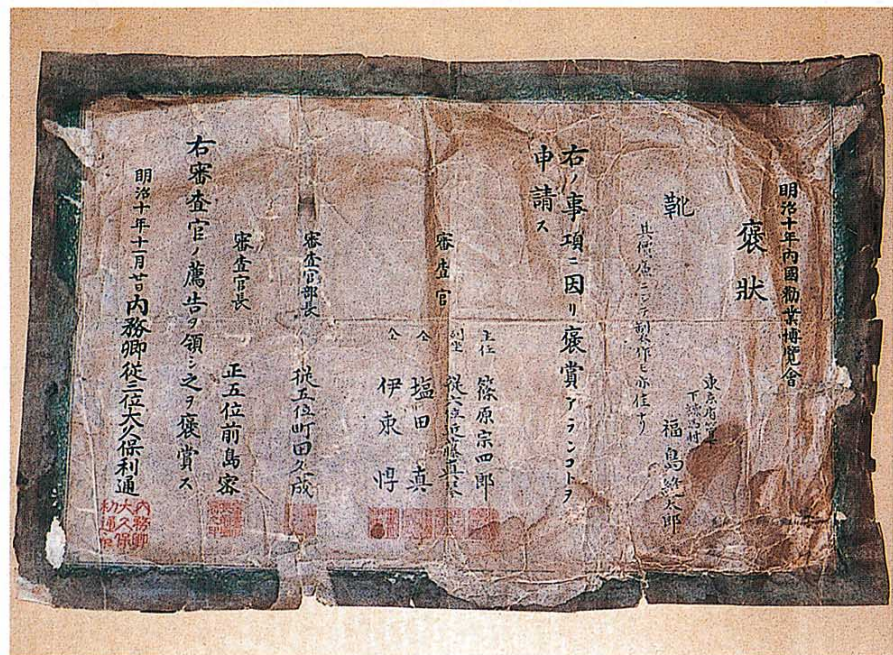 明治十年内國勸業博覽會
褒狀
下練馬村
福島
靴
其價廉ニシテ製作モ亦佳ナリ
右ノ事項ニ因リ褒賞アランコトヲ
申請ス
審査官
主任 篠原宗四郎
仝 塩田 真
仝 伊東 惇
審査官部長
從五位町田久成
審査官長
正五位前島密
右審査官ノ薦告ヲ領シ之ヲ褒賞ス
明治十年十一月廿日内務卿從三位大久保利通
内務卿
大久保
利通印